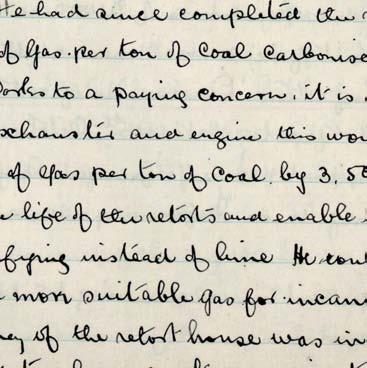 He had since completed the
of Gas per ton of Coal Carbonise
Works to a paying concern. it is
exhauster and engine this wou
of Gas per ton of Coal. by 3,50
life of the retorts and enable
fying instead of lime He cou
more suitable gas for incan
ney of the retort house was in